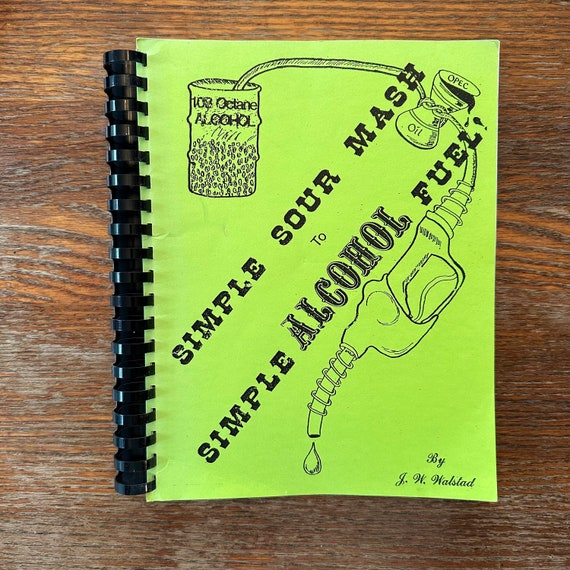 108 Octane
ALCOHOL
OPEC
Oil
SIMPLE SOUR MASH
To
SIMPLE ALCOHOL FUEL!
By
J. W. Walstad